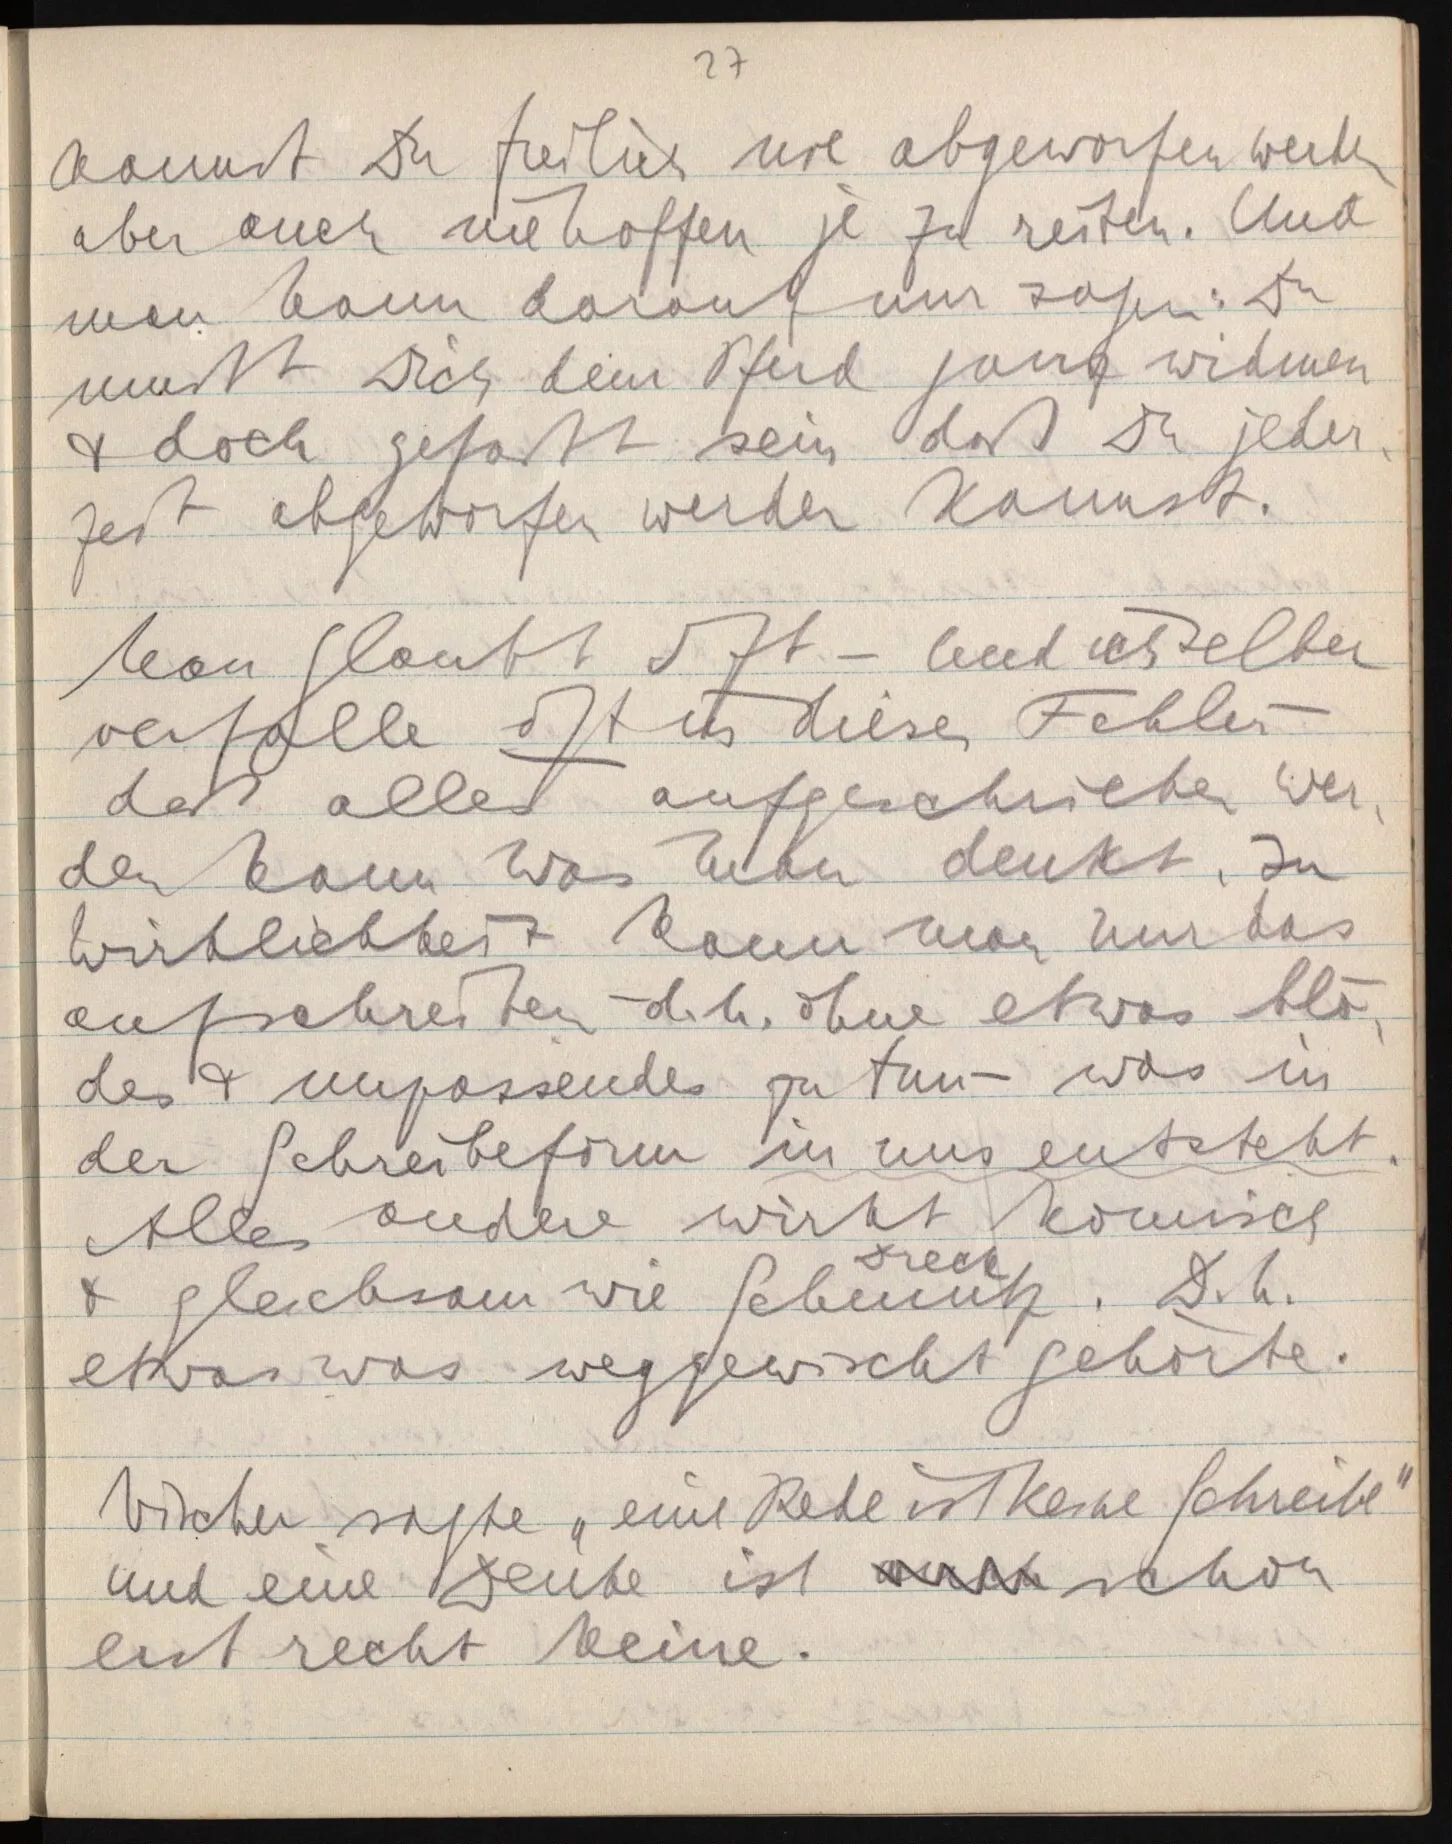 27
kannst Du freilich nie abgeworfen werden
aber auch nie hoffen je zu reiten. Und
man kann darauf nur sagen: Du
mußt Dich dem Pferd ganz widmen
& doch gefaßt sein daß Du jeder-
zeit abgeworfen werden kannst.
Man glaubt oft – und ich selber
verfalle oft in diesen Fehler –
daß alles aufgeschrieben wer-
den kann was man denkt. In
Wirklichkeit kann man nur das
aufschreiben – d.h. ohne etwas blö-
des & unpassendes zu tun – was in
der Schreibeform in uns entsteht.
Alles andere wirkt komisch
& gleichsam wie Schmutz Dreck. D.h.
etwas was weggewischt gehörte.
Vischer sagte „eine Rede ist keine Schreibe"
und eine Denke ist schon
erst recht keine.